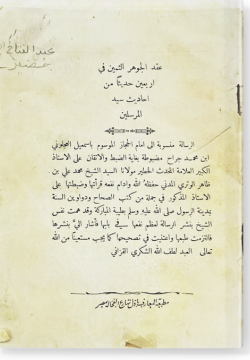 عبد الفتاح
عقد الجوهر الثمين في
اربعين حديثا من
احاديث سيد
المرسلين
الرسالة منسوبة الى امام الحجاز الموسوم باسمعيل العجلوني
ابن محمد جراح مضبوطة بغاية الضبط والاتقان على الاستاذ
الكبير العلامة المحدث الخطير مولانا السيد الشيخ محمد علي بن
ظاهر الوتري المدني حفظه الله وادام نفعه قرأتها وضبطتها على
الاستاذ المذكور في جملة من كتب الصحاح ودواوين السنة
بمدينة الرسول صلى الله عليه وسلم بطيبة المباركة وقد همت نفس
الشيخ بنشر الرسالة لعظم نفعها في بابها فأشار الي بنشرها
فالتزمت طبعها واعتنيت في تصحيحها كما يجب مستعينا من الله
تعالى العبد لطف الله الشكري القزاني